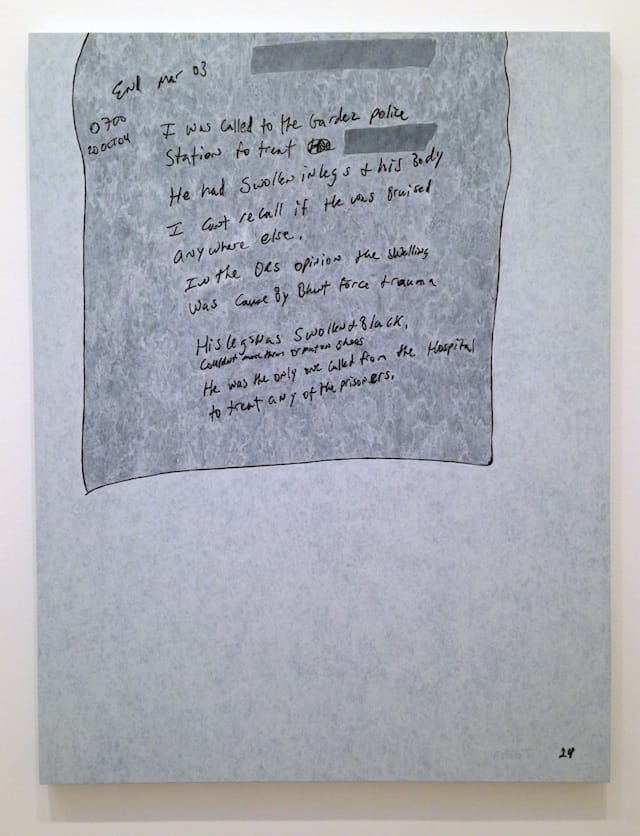 End Mar 03
0700
20 OCT 04
I was called to the Gardez police
Station to treat
He had Swollen in legs & his Body
I cant recall if he was Bruised
anywhere else.
In the DRs opinion the swelling
was cause By Blunt Force trauma
His legs was Swollen & Black.
Couldnt move them or put on shoes
He was the only one called from the Hospital
to treat any of the prisoners.
24